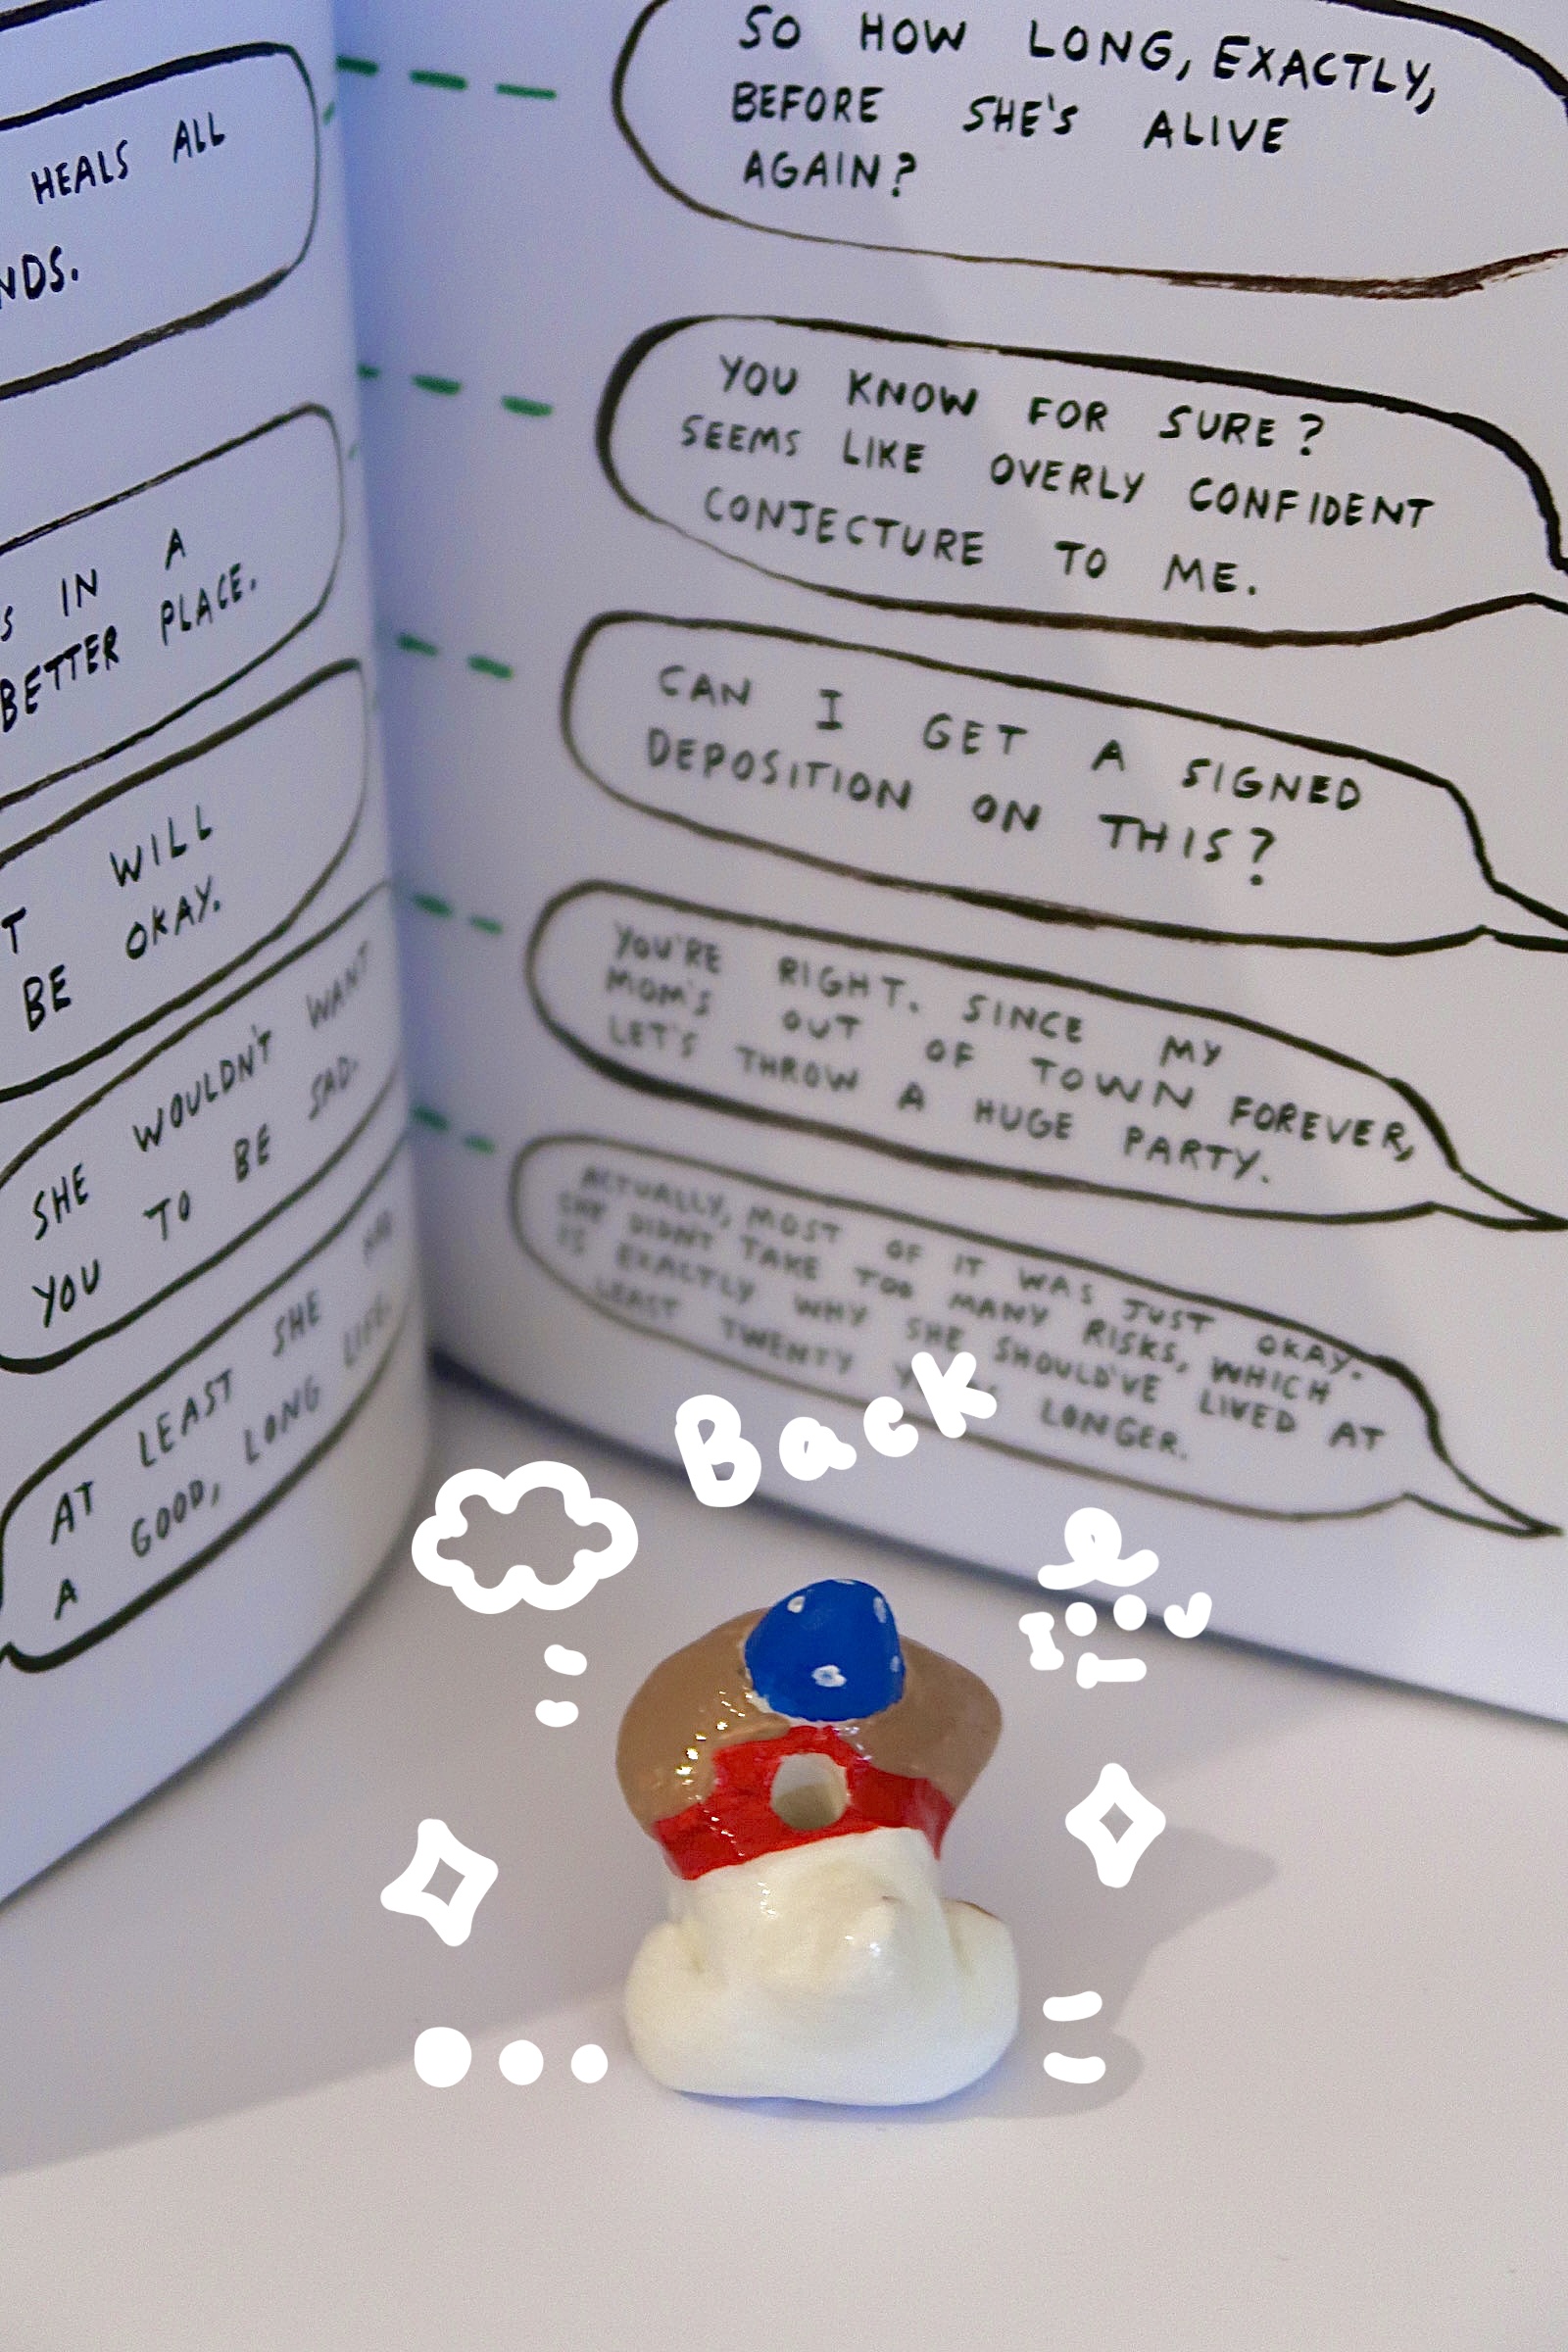 HEALS ALL
NDS.
S IN A
BETTER PLACE.
T WILL
BE OKAY.
SHE WOULDN'T WANT
YOU TO BE SAD.
AT LEAST SHE HAD
A GOOD, LONG LIFE.
SO HOW LONG, EXACTLY,
BEFORE SHE'S ALIVE
AGAIN?
YOU KNOW FOR SURE?
SEEMS LIKE OVERLY CONFIDENT
CONJECTURE TO ME.
CAN I GET A SIGNED
DEPOSITION ON THIS?
YOU'RE RIGHT. SINCE MY
MOM'S OUT OF TOWN FOREVER,
LET'S THROW A HUGE PARTY.
ACTUALLY, MOST OF IT WAS JUST OKAY.
SHE DIDN'T TAKE TOO MANY RISKS, WHICH
IS EXACTLY WHY SHE SHOULD'VE LIVED AT
LEAST TWENTY LONGER.
Back